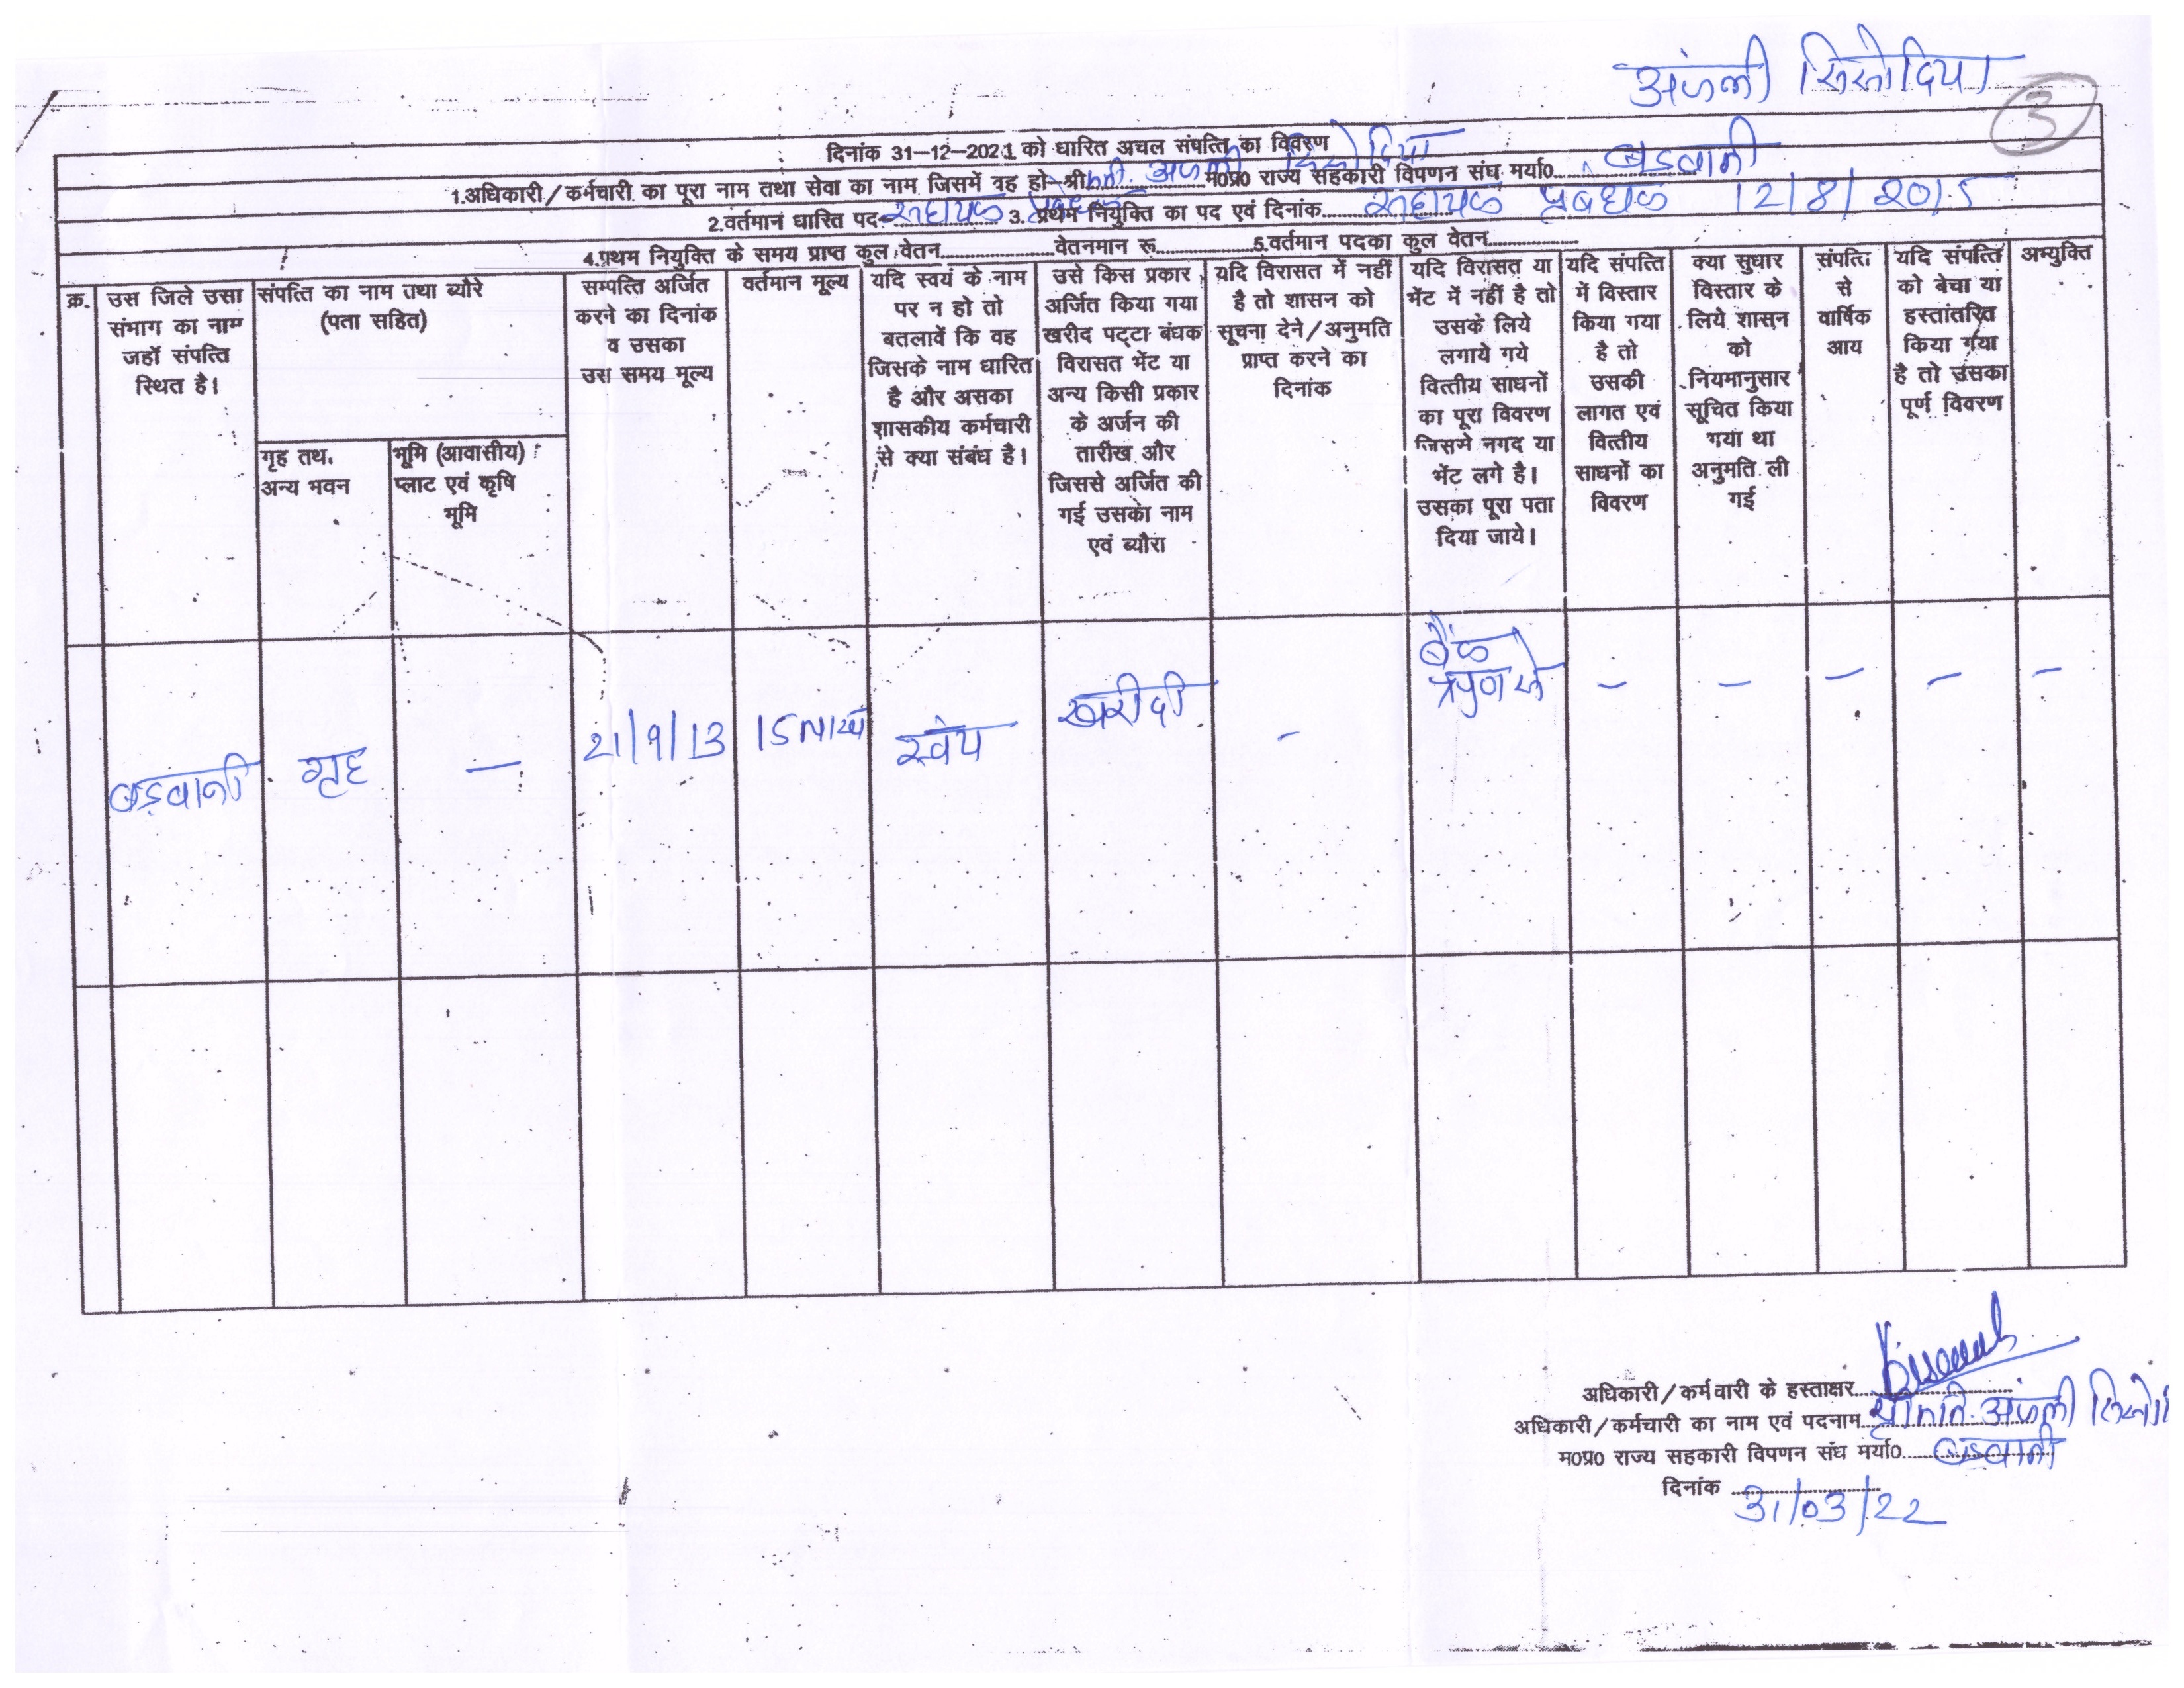 अंजली सिसोदिया
3
दिनांक 31-12-2021 को धारित अचल संपत्ति का विवरण
1.अधिकारी/कर्मचारी का पूरा नाम तथा सेवा का नाम जिसमें वह हो-श्रीमती. अंजली सिसोदिया म0प्र0 राज्य सहकारी विपणन संघ मर्या0. बड़वानी
2.वर्तमान धारित पद- सहायक प्रबंधक 3. प्रथम नियुक्ति का पद एवं दिनांक. सहायक प्रबंधक 12/8/2015
4.प्रथम नियुक्ति के समय प्राप्त कुल वेतन..............वेतनमान रू..............5.वर्तमान पदका कुल वेतन..............
क्र.
उस जिले उसा
संभाग का नाम
जहॉ संपत्ति
स्थित है।
संपत्ति का नाम तथा ब्यौरे
(पता सहित)
गृह तथ.
अन्य भवन
भूमि (आवासीय)
प्लाट एवं कृषि
भूमि
सम्पत्ति अर्जित
करने का दिनांक
व उसका
उस समय मूल्य
वर्तमान मूल्य
यदि स्वयं के नाम
पर न हो तो
बतलावें कि वह
जिसके नाम धारित
है और असका
शासकीय कर्मचारी
से क्या संबंध है।
उसे किस प्रकार
अर्जित किया गया
खरीद पट्टा बंधक
विरासत भेंट या
अन्य किसी प्रकार
के अर्जन की
तारीख और
जिससे अर्जित की
गई उसका नाम
एवं ब्यौरा
यदि विरासत में नहीं
है तो शासन को
सूचना देने/अनुमति
प्राप्त करने का
दिनांक
यदि विरासत या
भेंट में नहीं है तो
उसके लिये
लगाये गये
वित्तीय साधनों
का पूरा विवरण
जिसमे नगद या
भेंट लगे है।
उसका पूरा पता
दिया जाये।
यदि संपत्ति
में विस्तार
किया गया
है तो
उसकी
लागत एवं
वित्तीय
साधनों का
विवरण
क्या सुधार
विस्तार के
लिये शासन
को
नियमानुसार
सूचित किया
गया था
अनुमति ली
गई
संपत्ति
से
वार्षिक
आय
यदि संपत्ति
को बेचा या
हस्तांतरित
किया गया
है तो उसका
पूर्ण विवरण
अभ्युक्ति
बड़वानी गृह — 21/9/13 15 लाख स्वंय खरीदी - बैंक ऋण से - - - - -
अधिकारी/कर्मचारी के हस्ताक्षर..............
अधिकारी/कर्मचारी का नाम एवं पदनाम. श्रीमति. अंजली
म0प्र0 राज्य सहकारी विपणन संघ मर्या0. बड़वानी
दिनांक 31/03/22